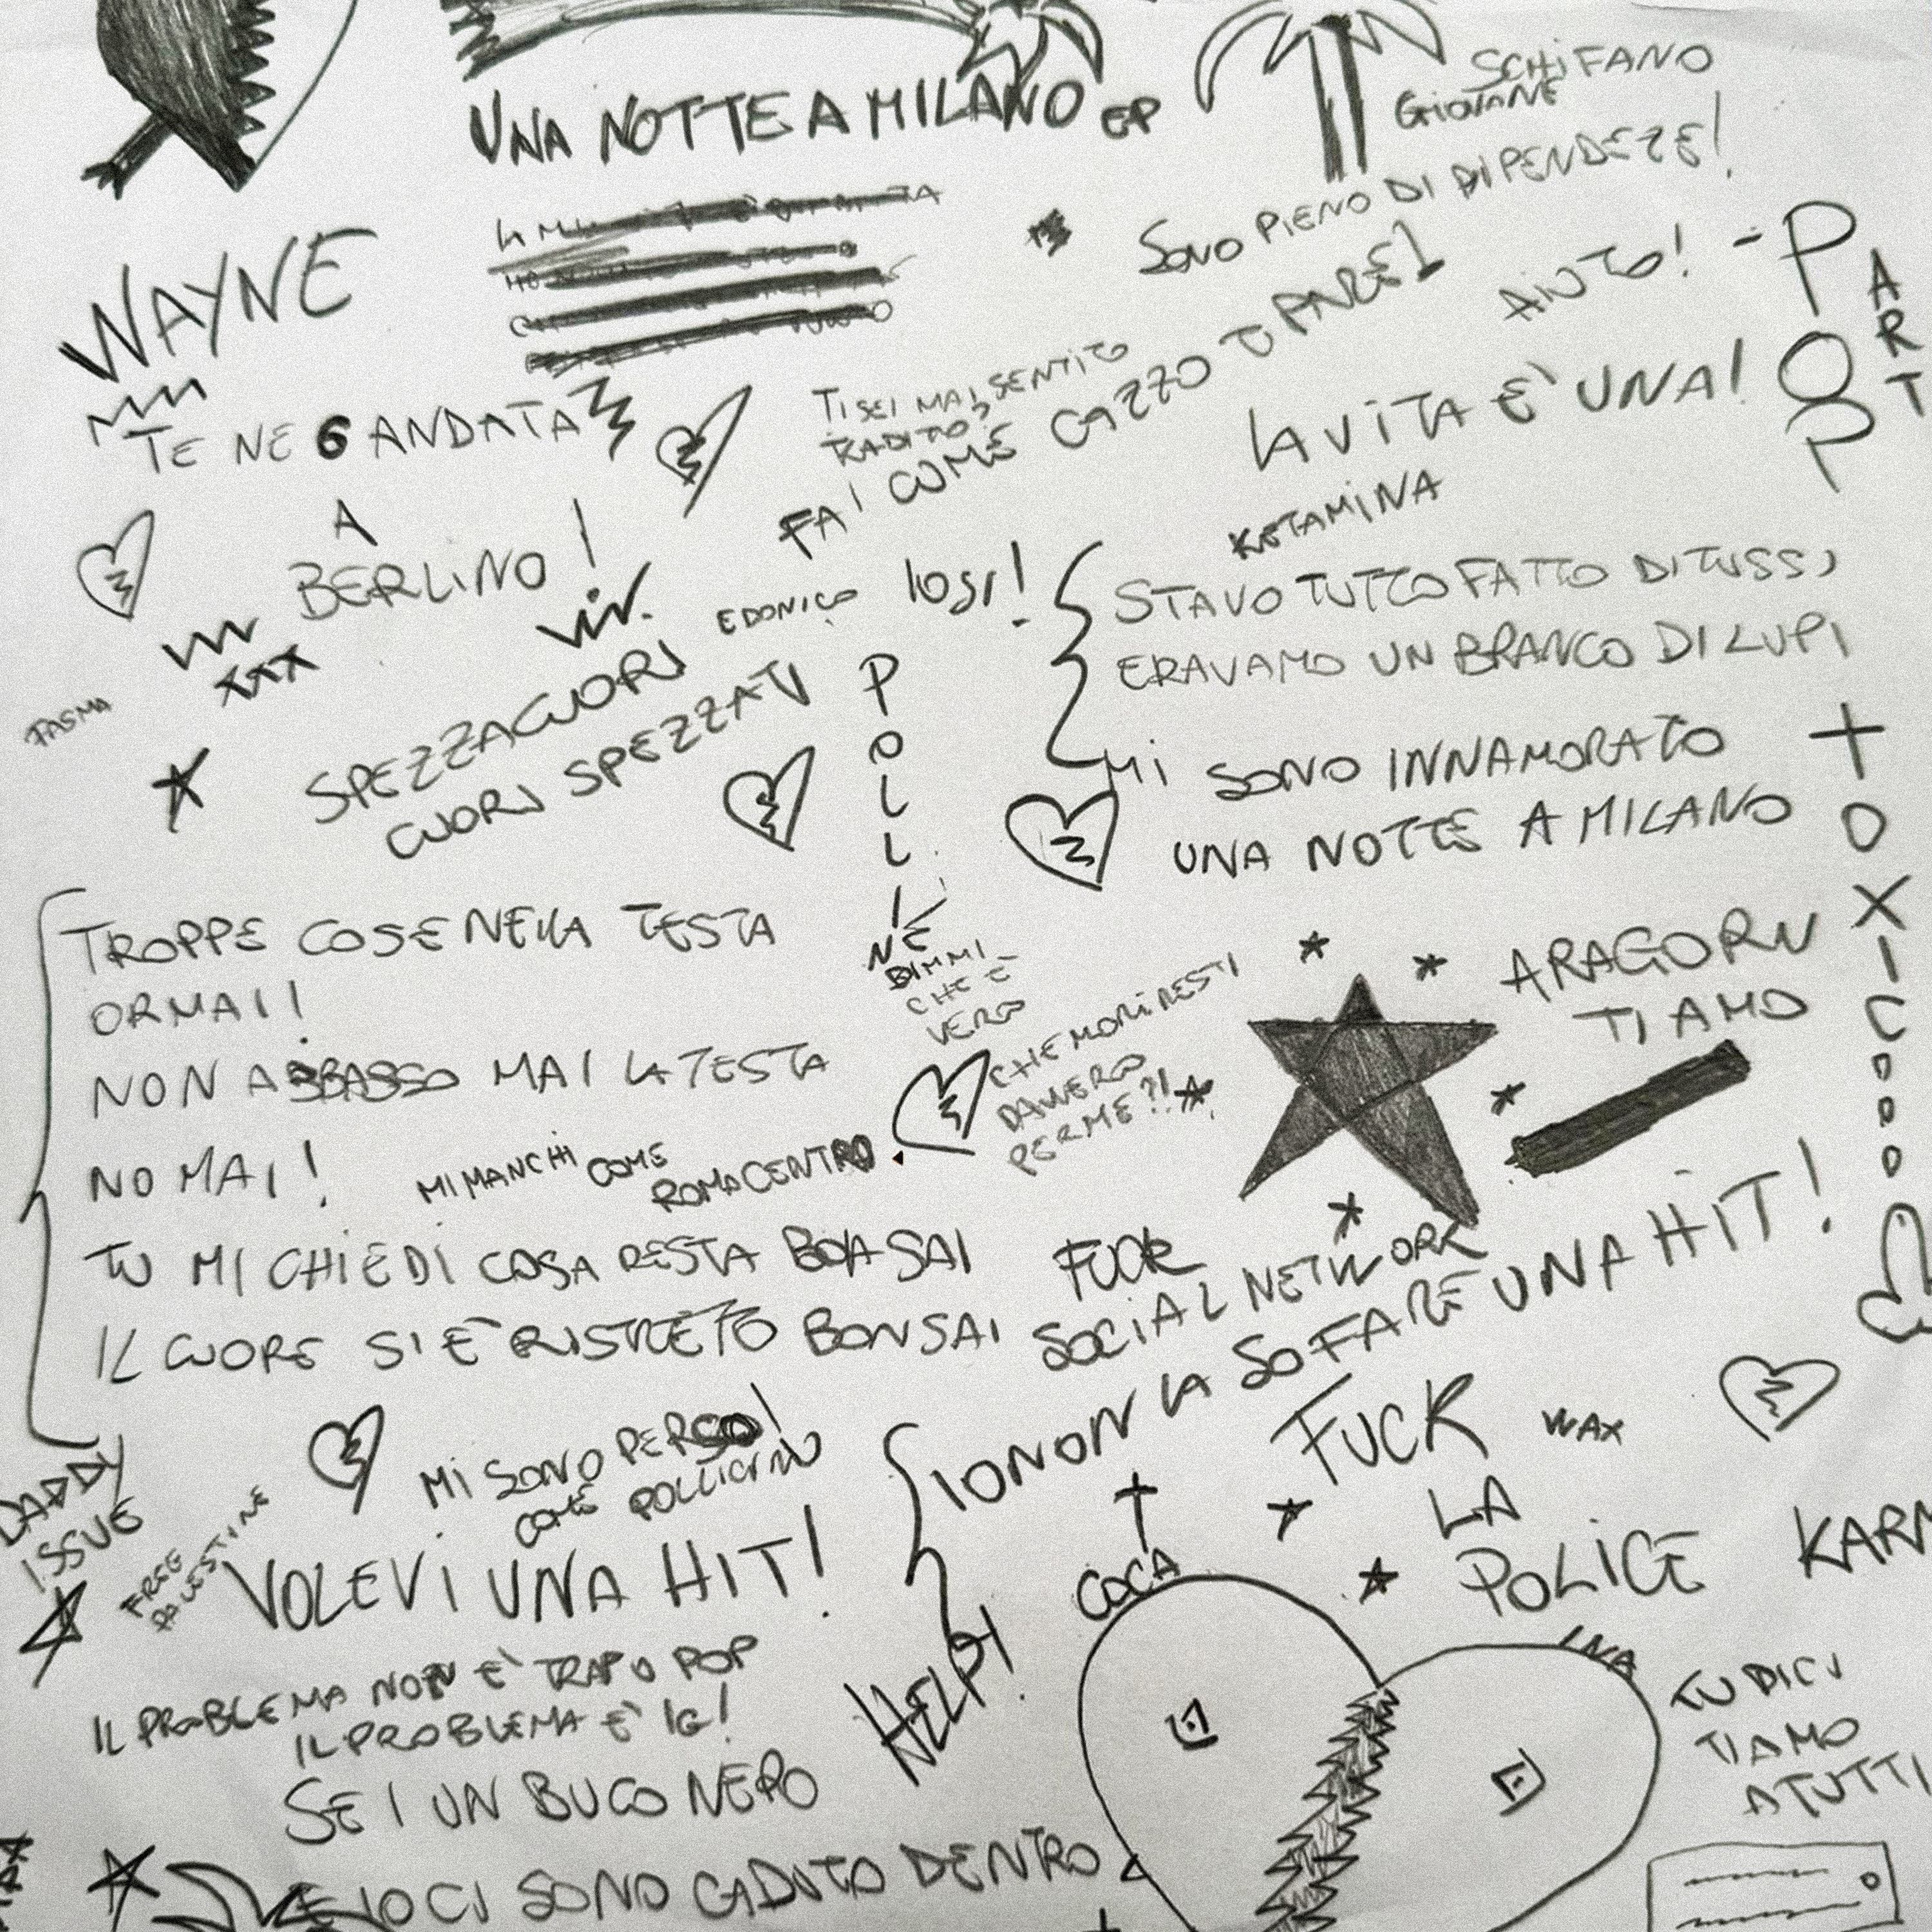 UNA NOTTE A MILANO EP
SCHIFANO
GIOVANE
SONO PIENO DI DIPENDEZE!
AIUTO! -
POP
ART
WAYNE
TE NE 6 ANDATA
A
BERLINO!
TI SEI MAI SENTITO
TRADITO?
FAI COME CAZZO TI PARE!
LA VITA E' UNA!
KETAMINA
STAVO TUTTO FATTO DI TUSS,
ERAVAMO UN BRANCO DI LUPI
MI SONO INNAMORATO
UNA NOTTE A MILANO
EDONICO
XXX
FASMA
SPEZZACUORI
CUORI SPEZZATI
POLLI
NE
DIMMI
CHE È
VERO
CHE MORIRESTI
DAVVERO
PER ME?!
TOXIC
ARAGORN
TI AMO
TROPPE COSE NELLA TESTA
ORMAI!
NON ABBASSO MAI LA TESTA
NO MAI!
MI MANCHI COME
ROMA CENTRO
TU MI CHIEDI COSA RESTA BOH SAI
IL CUORE SI È RISTRETTO BONSAI
FUCK
SOCIAL NETWORK
IO NON LA SO FARE UNA HIT!
FUCK
LA
POLICE
WAX
KARM
DADDY
ISSUE
FREE
PALESTINE
MI SONO PERSO!
COME POLLICINO
VOLEVI UNA HIT!
IL PROBLEMA NON E' TRAP O POP
IL PROBLEMA E' IG!
HELP!
COCA
INA
TU DICI
TI AMO
A TUTTI
SEI UN BUCO NERO
E IO CI SONO CADUTO DENTRO